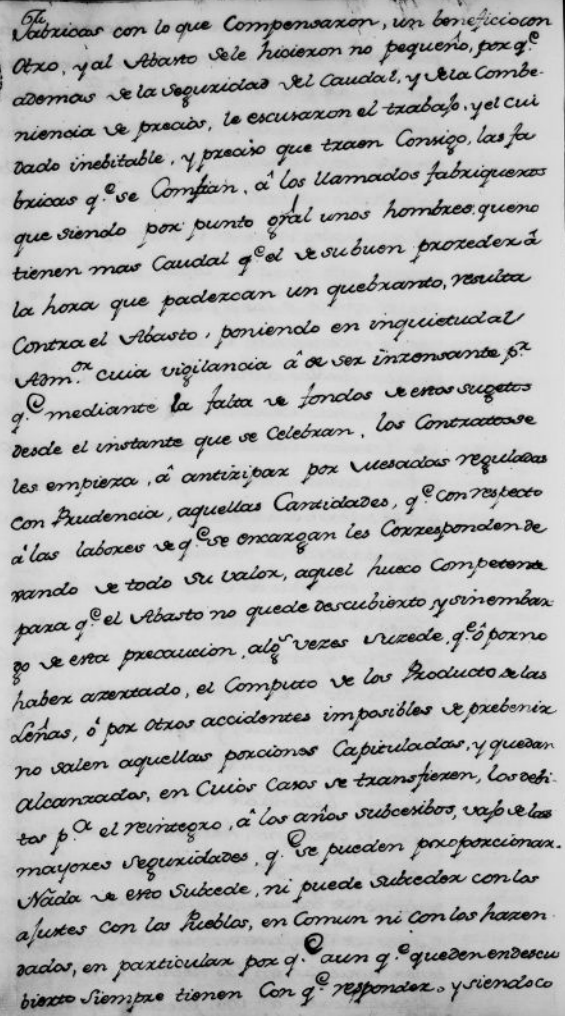 Fabricas con lo que Compensaron, un beneficio con
Otro, y al Abasto se le hicieron no pequeño, por q.e
ademas de la seguridad del Caudal, y de la Combe-
niencia de precios, le escusaron el trabajo, y el cui
dado inebitable, y preciso que traen Consigo, las fa
bricas q.e se Confian, â los llamados fabriqueros
que siendo por punto gral unos hombres, que no
tienen mas Caudal q.e el de su buen prozeder â
la hora que padezcan un quebranto, resulta
Contra el Abasto, poniendo en inquietud al
Adm.or cuia vigilancia â de ser inzensante p.r
q.e mediante la falta de fondos de estos sugetos
desde el instante que se Celebran, los Contratos se
les empieza, â antizipar por mesadas reguladas
con Prudencia, aquellas Cantidades, q.e con respecto
â las labores de q.e se encargan les Corresponden de
xando de todo su valor, aquel hueco Competente
para q.e el Abasto no quede descubierto, y sin embar
go de esta precaucion, alg.s vezes suzede, q.e ô por no
haber azertado, el Computo de los Producto de las
Leñas, ô por otros accidentes imposibles de prebenir
no salen aquellas porciones Capituladas, y quedan
Alcanzados, en Cuios Casos se transfieren, los debi-
tos p.a el reintegro, â los años subcesibos, vajo de las
mayores seguridades, q.e se pueden proporcionar.
Nada de esto Subcede, ni puede Subceder con los
ajustes con los Pueblos, en Comun ni con los hazen
dados, en particular por q.e aun q.e queden en descu
bierto Siempre tienen Con q.e responder. y siendo co